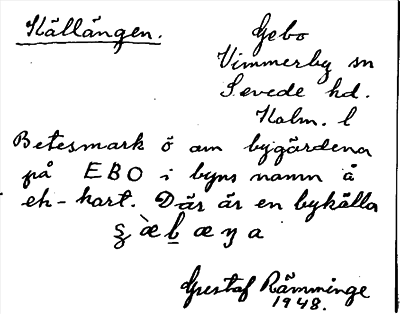 Källängen.
Gebo
Vimmerby sn
Sevede hd.
Kalm. l
Betesmark ö om bygårdena
på EBO i byns namn å
ek-kart. Där är en bykälla
Gustaf Rämminge
1948.